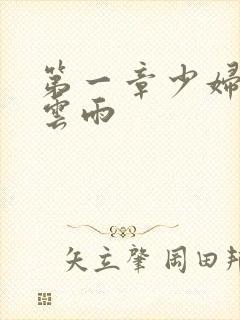 第一章少婦
雲雨
矢立肇 岡田邦